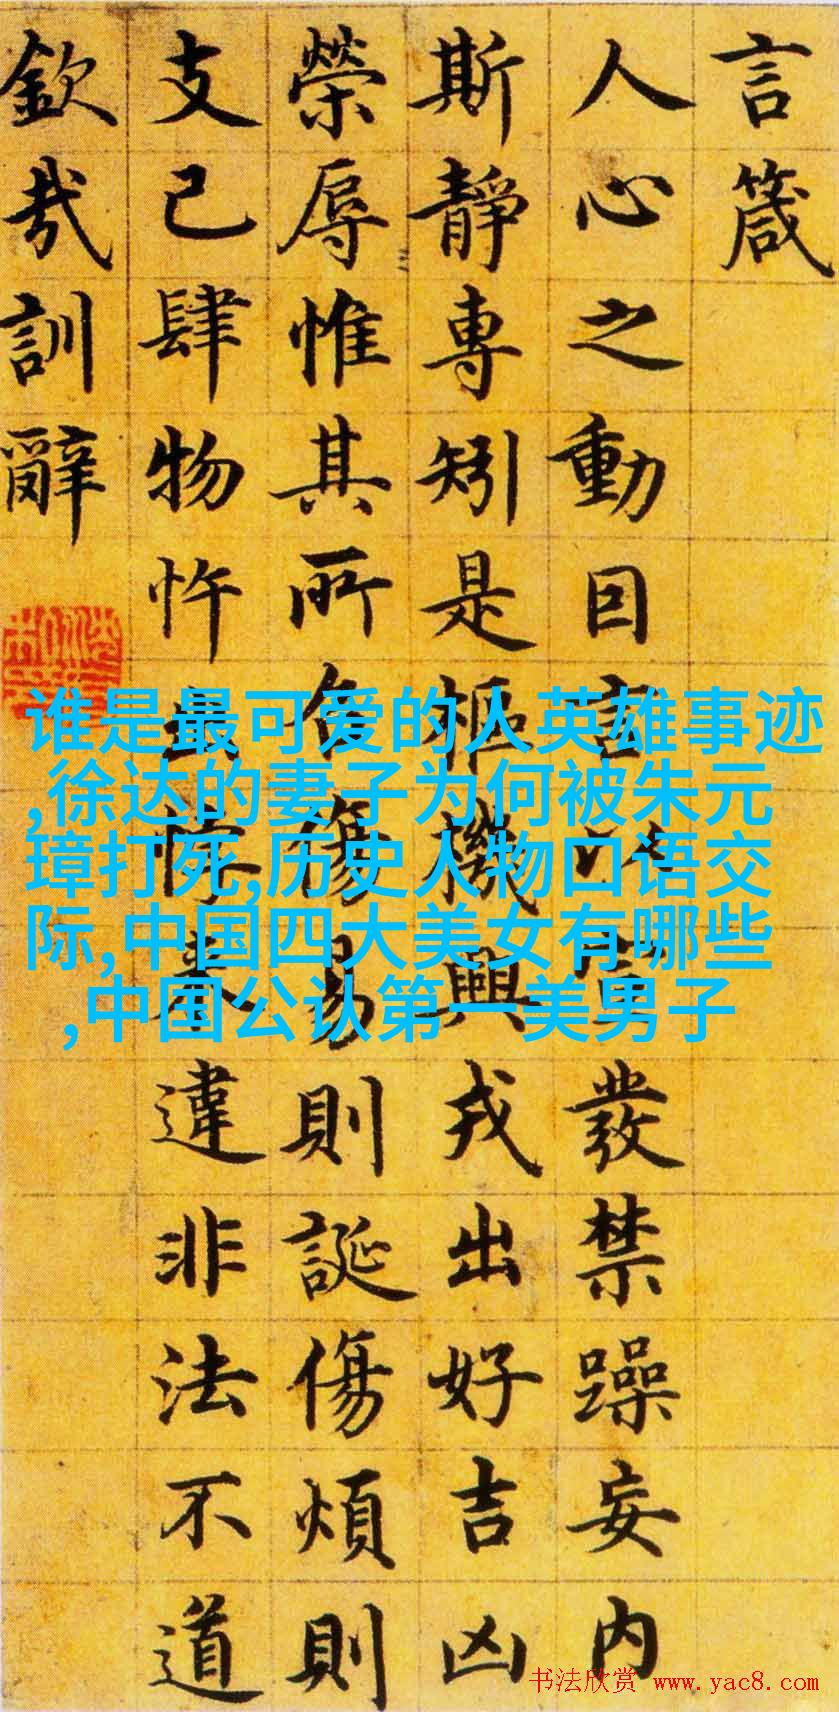 言箴
人心之動因言以宣發禁躁妄内
斯靜專矧是樞機興戎出好吉凶
榮辱惟其所召傷易則誕傷煩則
支己肆物忤出悖來違非法不道
欽哉訓辭
谁是最可爱的人英雄事迹
,徐达的妻子为何被朱元
璋打死,历史人物口语交
际,中国四大美女有哪些
,中国公认第一美男子
书法欣赏 www.yac8.com